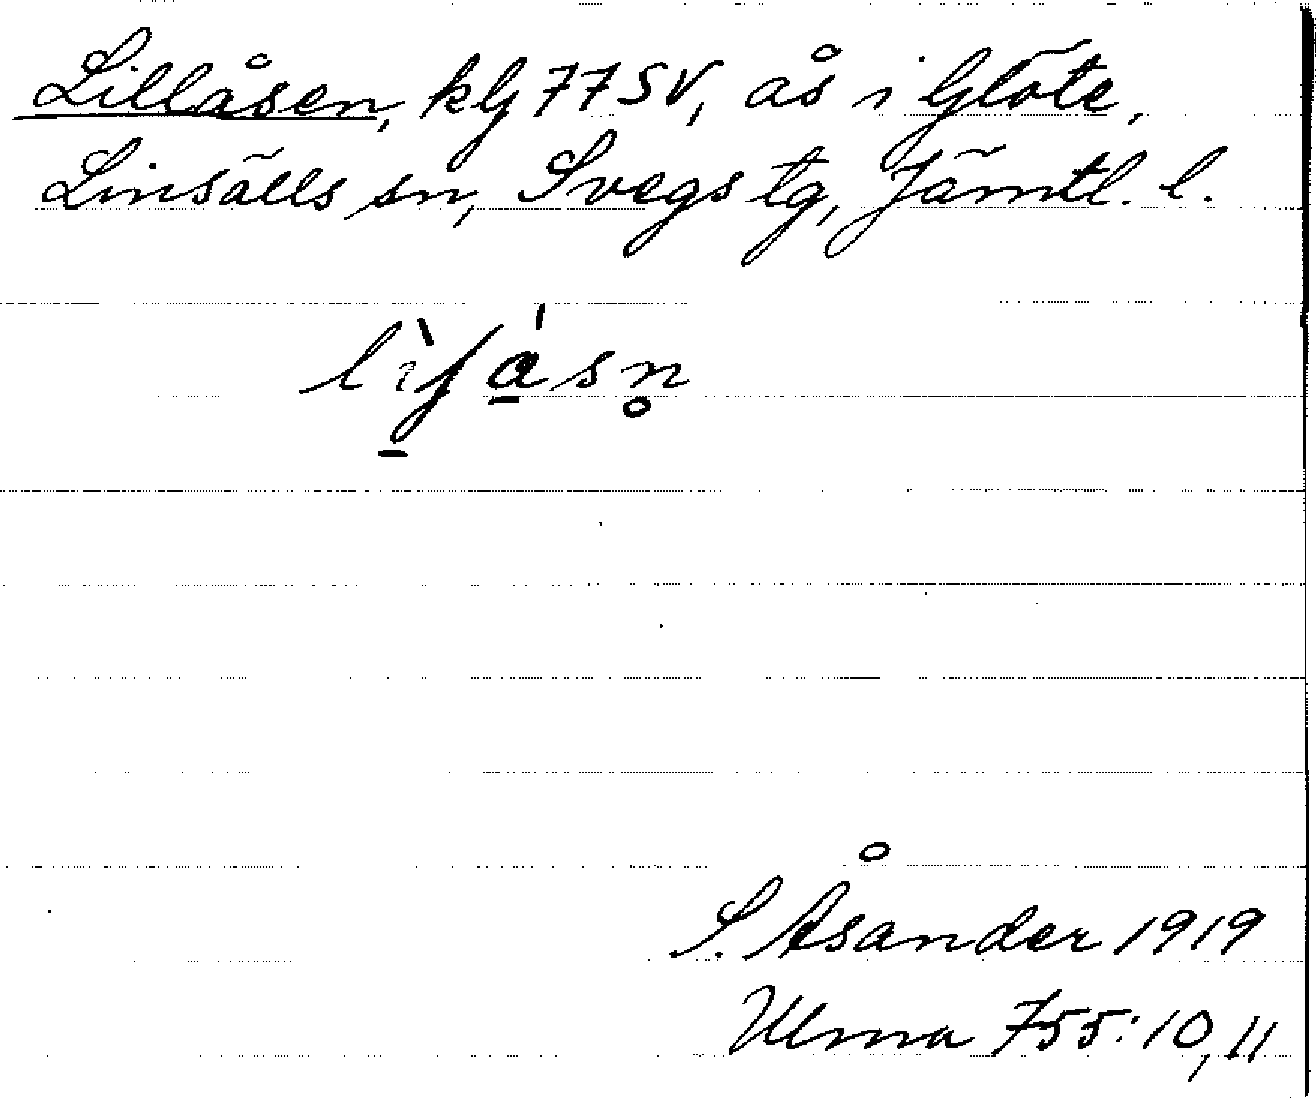 Lillåsen, kbj 77 SV, ås i Glöte,
Linsälls sn, Svegs tg, Jämtl. l.
S. Åsander 1919
Ulma 755:10,11